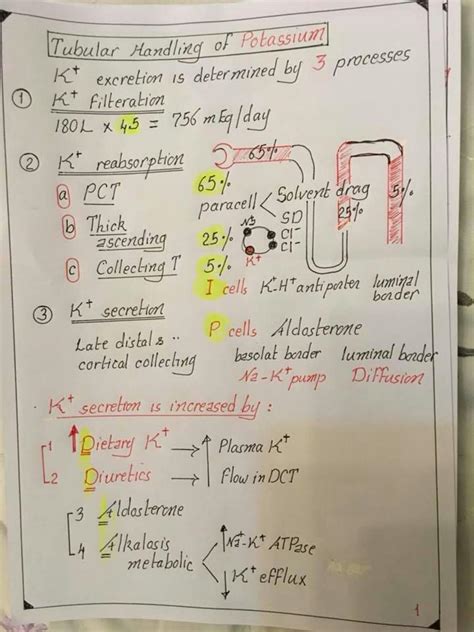 Tubular Handling of Potassium
K+ excretion is determined by 3 processes
① K+ filteration
180L x 4.5 = 756 mEq/day
② K+ reabsorption
65%
a PCT 65% paracell < Solvent drag
SD
5%
25%
b Thick ascending 25% Na Cl- Cl- K+
c Collecting T 5%
I cells K+-H+ antiporter luminal border
③ K+ secretion
P cells Aldosterone
Late distal &
cortical collecting
basolat border luminal border
Na-K+ pump Diffusion
K+ secretion is increased by :
1 ↑ Dietary K+ → ↑ Plasma K+
2 Diuretics → flow in DCT
3 Aldosterone
4 Alkalosis
metabolic
↑ Na+-K+ ATPase
↓ K+ efflux
1